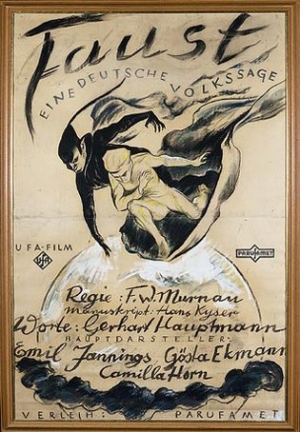 Faust
EINE DEUTSCHE VOLKSSAGE
UFA-FILM
Ufa
PARUFAMET
Regie: F.W. Murnau
Manuskript: Hans Kyser
Worte: Gerhart Hauptmann
HAUPTDARSTELLER:
Emil Jannings Gösta Ekmann
Camilla Horn
VERLEIH: PARUFAMET